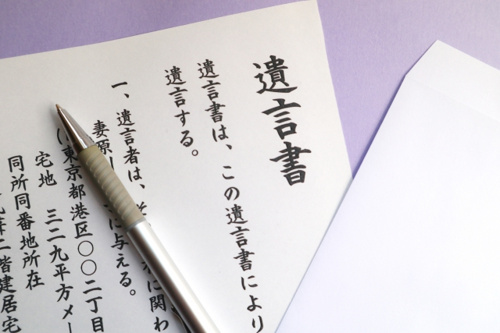 遺言書
遺言書は、この遺言書により
遺言する。
一、遺言者は、に関わ
妻原に与える。
(東京都港区〇〇二丁目
宅地 三二九平方メー
同所同番地所在
二階建居宅